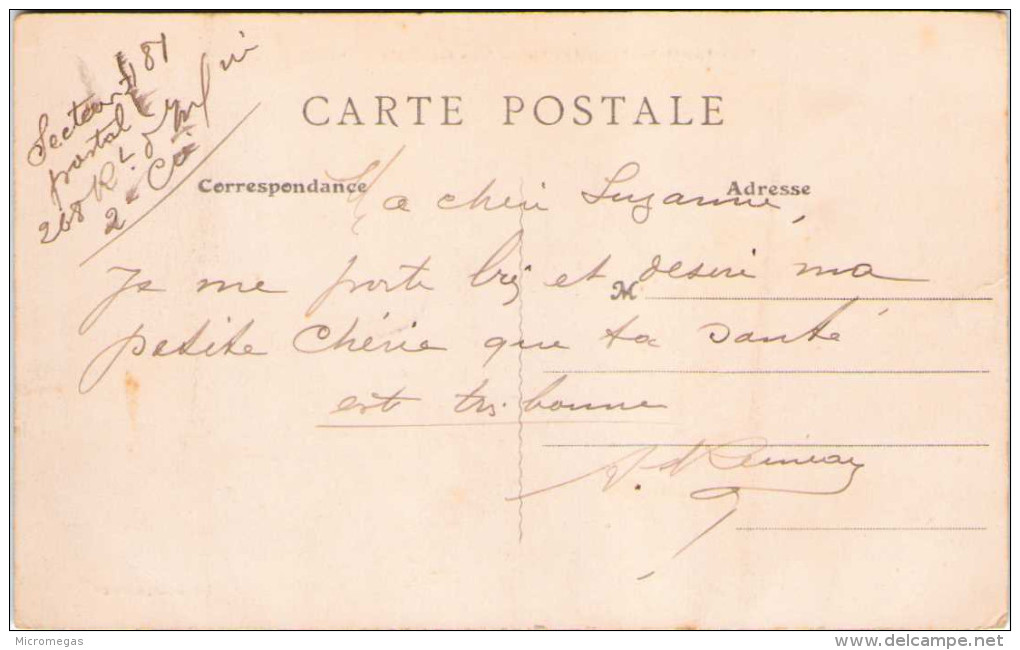 Secteur 181
postal
268 Rt d'Infrie
2e Cie
CARTE POSTALE
Correspondance
Adresse
Ma chéri Suzanne,
Je me porte et desire ma
M
petite Chérie que ta santé
est trs. bonne
Micromegas
www.delcampe.net